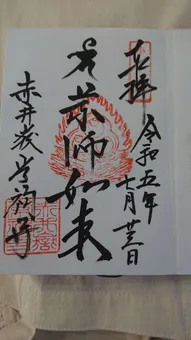 奉拝
令和五年
七月廿三日
薬師如来
赤井嶽常福寺